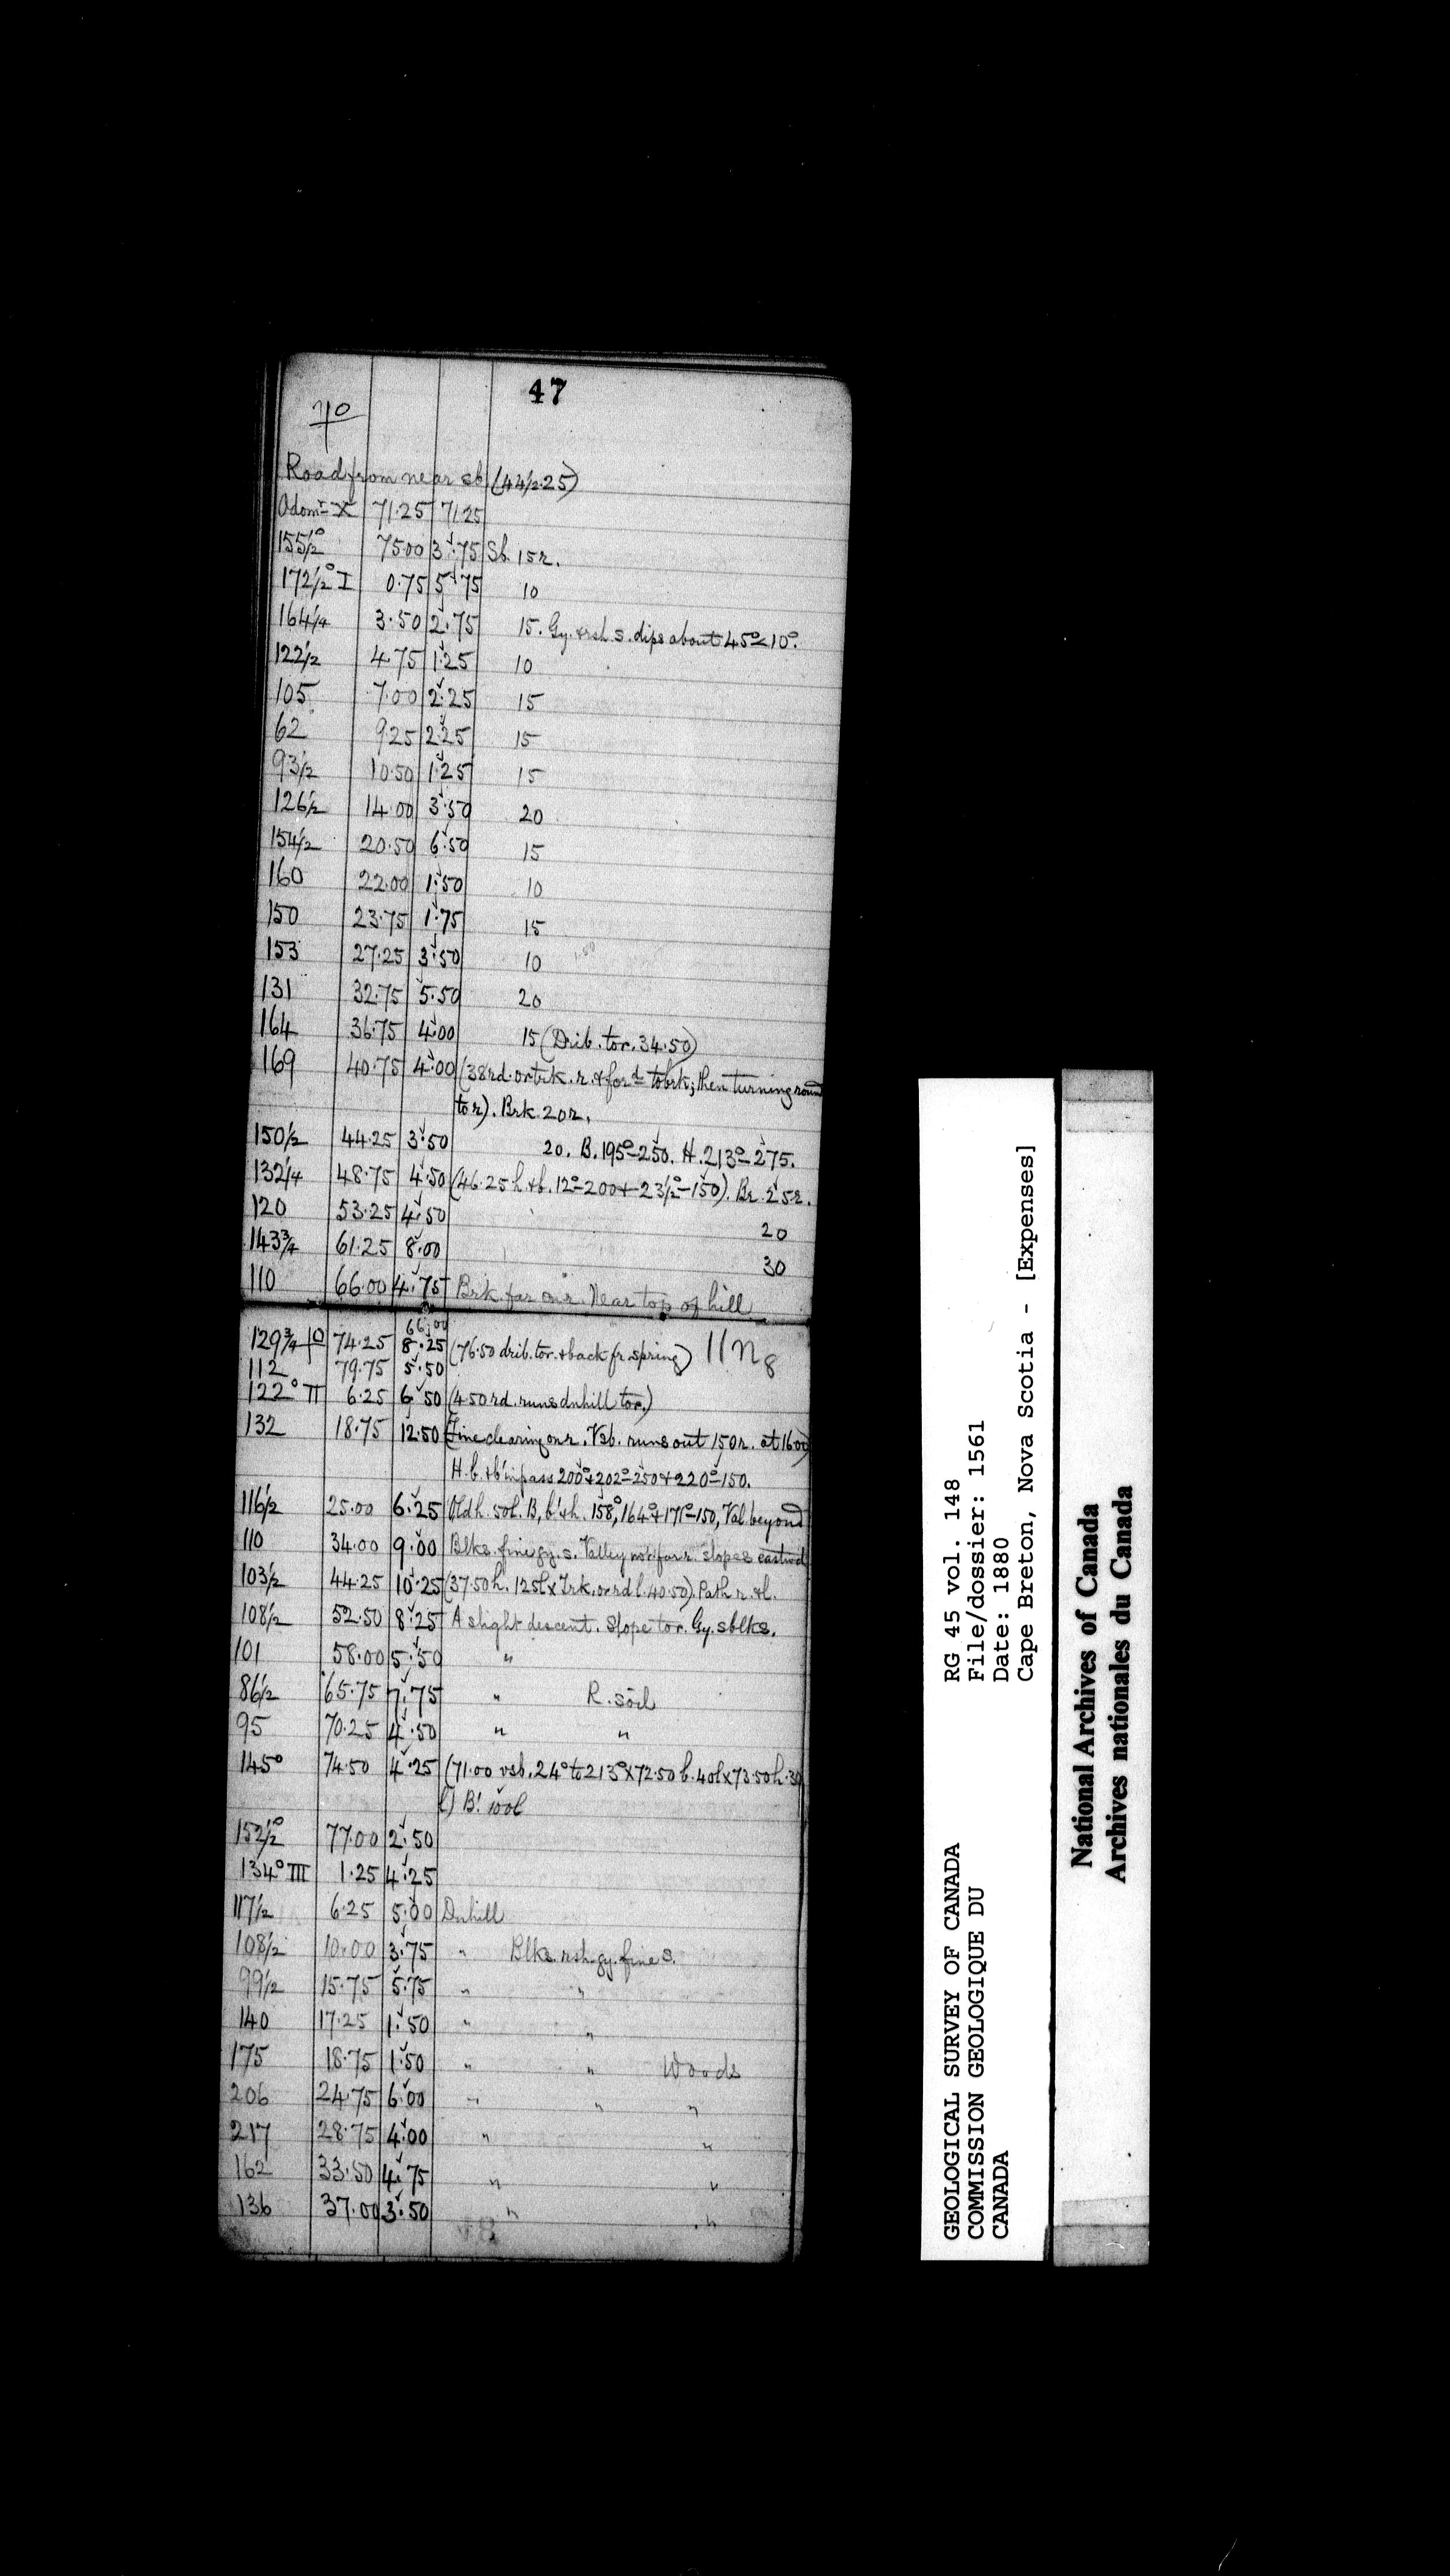 47
Road from near sb. (44/2.25)
Odomr X 71.25 71.25
155½° 75.00 3.75 Sb. 15r.
172½° I 0.75 5.75 10
164¼ 3.50 2.75 15. Gy. & rsh. s. dips about 45° < 10°.
122½ 4.75 1.25 10
105 7.00 2.25 15
62 9.25 2.25 15
93½ 10.50 1.25 15
126½ 14.00 3.50 20
154½ 20.50 6.50 15
160 22.00 1.50 10
150 23.75 1.75 15
153 27.25 3.50 10
131 32.75 5.50 20
164 36.75 4.00 15 (Drib. to r. 34.50)
169 40.75 4.00 (38 rd. or trk. r. & ford to brk; then turning round
to r). Brk. 20r.
150½ 44.25 3.50 20. B. 195°-250. H. 213°-275.
132¼ 48.75 4.50 (46.25 h. & b. 12°-200 & 23½°-150). Br. 25r.
120 53.25 4.50 20
143¾ 61.25 8.00 30
110 66.00 4.75 Brk far on r. Near top of hill
66.00
129¾ 74.25 8.25 (76.50 drib. to r. & back fr. spring) 11n8
112 79.75 5.50
122° II 6.25 6.50 (4.50 rd. runs dnhill to r.)
132 18.75 12.50 (Fine clearing on r. Vsb. runs out 150r. at 16.00)
H. b. & b' in pass 200° & 202°-250 & 220°-150.
116½ 25.00 6.25 Old h. 50l. B, b' & h. 158°, 164° & 171°-150, Val. beyond
110 34.00 9.00 Blks. fine gy. s. Valley not far r. slopes eastwd
103½ 44.25 10.25 (37.50 h. 125l x Trk. or rd l. 40.50). Path r. & l.
108½ 52.50 8.25 A slight descent. Slope to r. Gy. s blks.
101 58.00 5.50 "
86½ 65.75 7.75 " R. soil
95 70.25 4.50 " "
145° 74.50 4.25 (71.00 vsb. 24° to 213° x 72.50 b. 40l x 73.50 h. 30
l) B'. 100l
152½° 77.00 2.50
134° III 1.25 4.25
117½ 6.25 5.00 Dnhill
108½ 10.00 3.75 " Blks. rsh. gy. fine s.
99½ 15.75 5.75 " "
140 17.25 1.50 " "
175 18.75 1.50 " " Woods
206 24.75 6.00 " " "
217 28.75 4.00 " "
162 33.50 4.75 " "
136 37.00 3.50 " "
GEOLOGICAL SURVEY OF CANADA
COMMISSION GEOLOGIQUE DU
CANADA
RG 45 vol. 148
File/dossier: 1561
Date: 1880
Cape Breton, Nova Scotia - [Expenses]
National Archives of Canada
Archives nationales du Canada